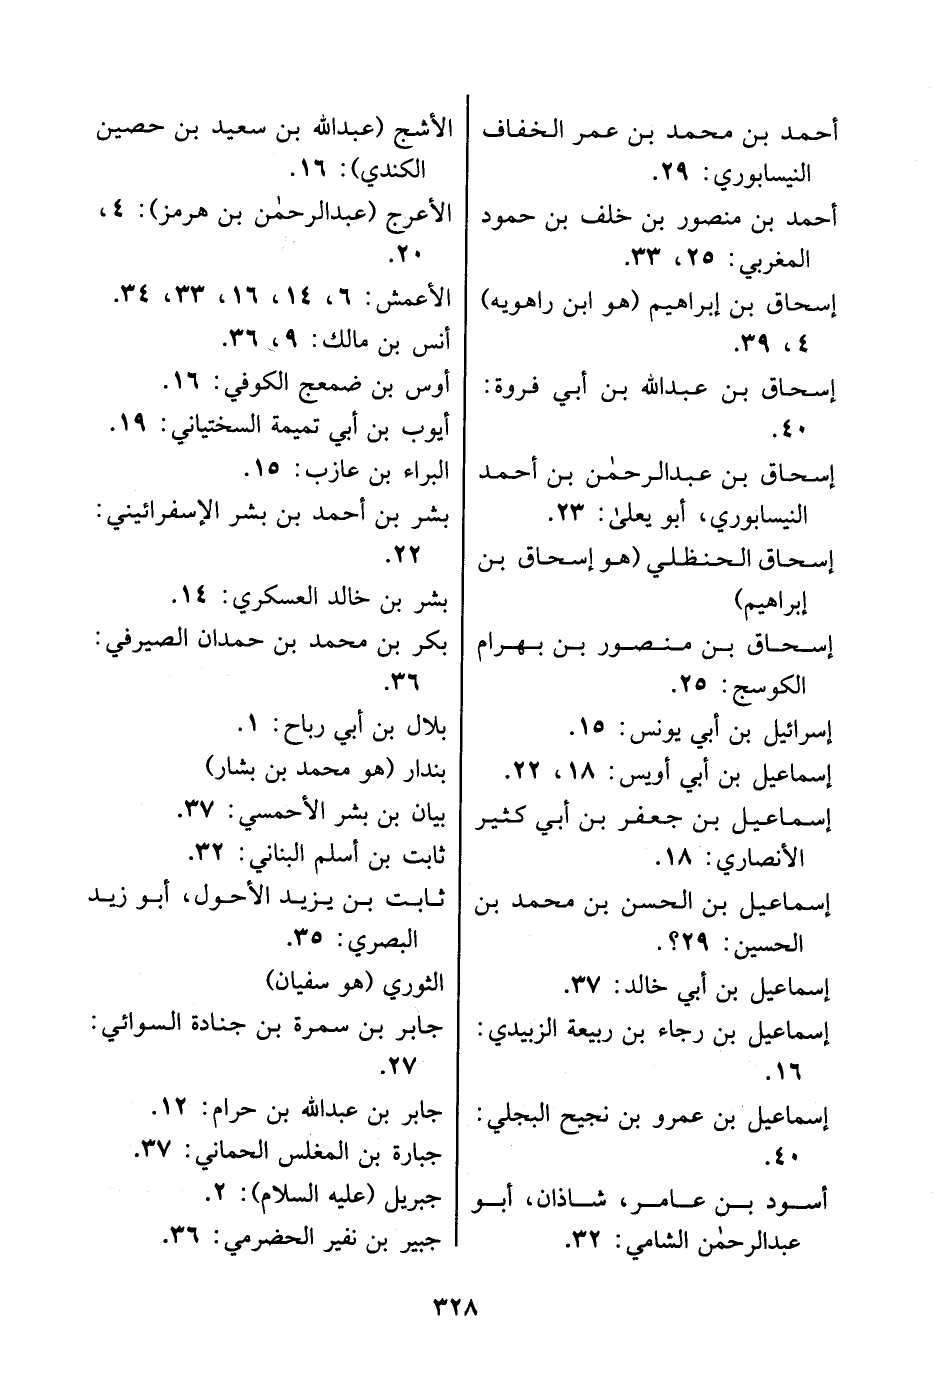 أحمد بن محمد بن عمر الخفاف
النيسابوري: ٢٩.
أحمد بن منصور بن خلف بن حمود
المغربي: ٢٥، ٣٣.
إسحاق بن إبراهيم (هو ابن راهويه)
٤، ٣٩.
إسحاق بن عبدالله بن أبي فروة:
٤٠.
إسحاق بن عبدالرحمٰن بن أحمد
النيسابوري، أبو يعلىٰ: ٢٣.
إسحاق الحنظلي (هو إسحاق بن
إبراهيم)
إسحاق بن منصور بن بهرام
الكوسج: ٢٥.
إسرائيل بن أبي يونس: ١٥.
إسماعيل بن أبي أويس: ١٨، ٢٢.
إسماعيل بن جعفر بن أبي كثير
الأنصاري: ١٨.
إسماعيل بن الحسن بن محمد بن
الحسين: ٢٩؟.
إسماعيل بن أبي خالد: ٣٧.
إسماعيل بن رجاء بن ربيعة الزبيدي:
١٦.
إسماعيل بن عمرو بن نجيح البجلي:
٤٠.
أسود بن عامر، شاذان، أبو
عبدالرحمٰن الشامي: ٣٢.
الأشج (عبدالله بن سعيد بن حصين
الكندي): ١٦.
الأعرج (عبدالرحمٰن بن هرمز): ٤،
٢٠.
الأعمش: ٦، ١٤، ١٦، ٣٣، ٣٤.
أنس بن مالك: ٩، ٣٦.
أوس بن ضمعج الكوفي: ١٦.
أيوب بن أبي تميمة السختياني: ١٩.
البراء بن عازب: ١٥.
بشر بن أحمد بن بشر الإسفرائيني:
٢٢.
بشر بن خالد العسكري: ١٤.
بكر بن محمد بن حمدان الصيرفي:
٣٦.
بلال بن أبي رباح: ١.
بندار (هو محمد بن بشار)
بيان بن بشر الأحمسي: ٣٧.
ثابت بن أسلم البناني: ٣٢.
ثابت بن يزيد الأحول، أبو زيد
البصري: ٣٥.
الثوري (هو سفيان)
جابر بن سمرة بن جنادة السوائي:
٢٧.
جابر بن عبدالله بن حرام: ١٢.
جبارة بن المغلس الحماني: ٣٧.
جبريل (عليه السلام): ٢.
جبير بن نفير الحضرمي: ٣٦.
٣٢٨